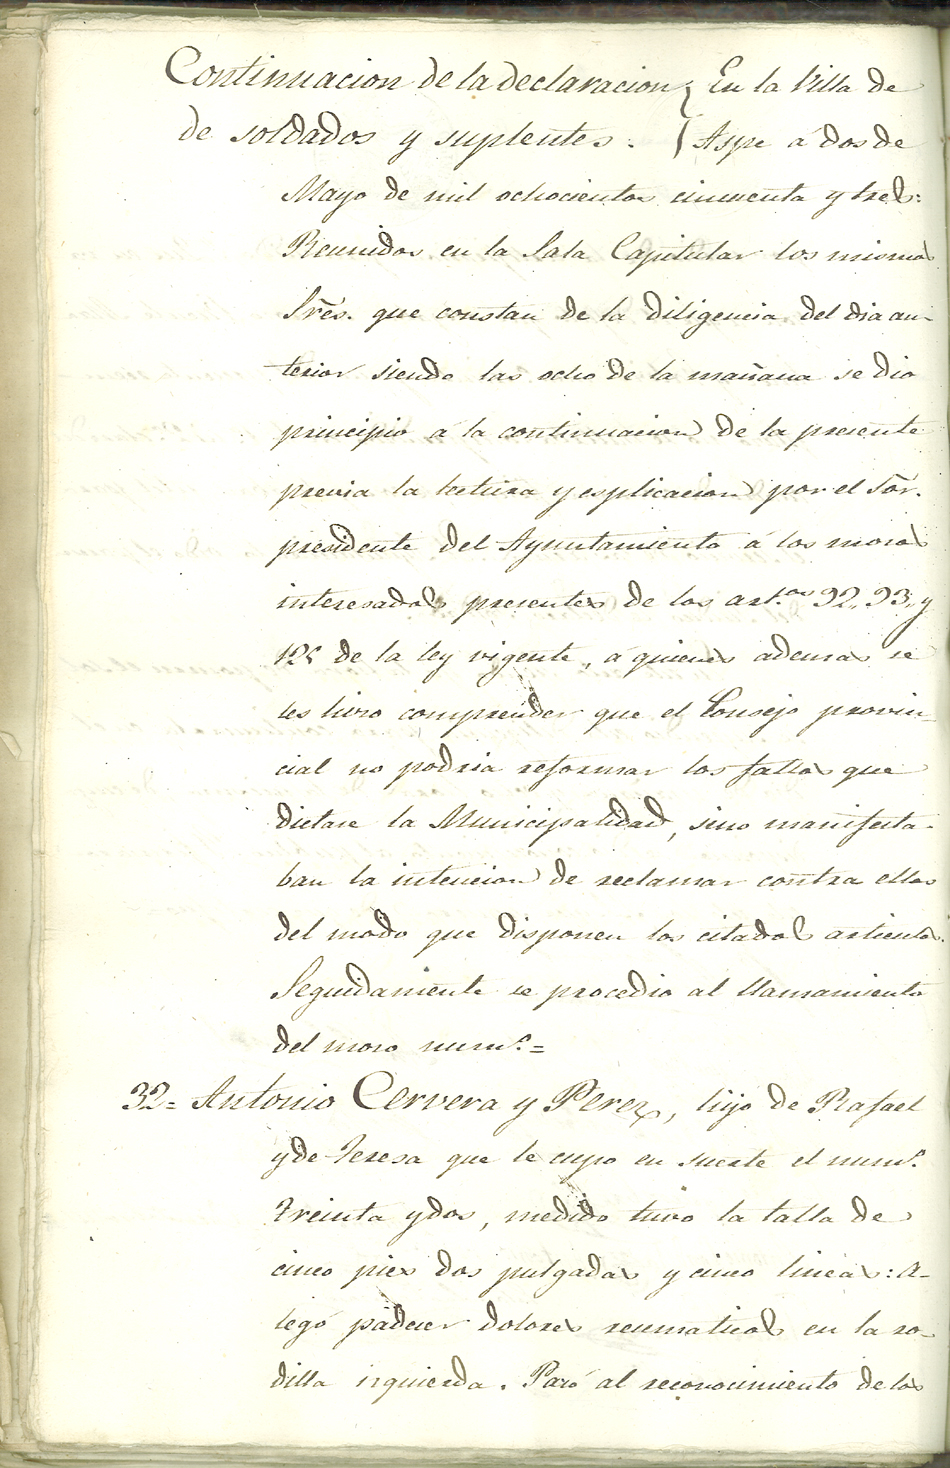 Continuacion de la declaracion } En la Villa de
de soldados y suplentes. } Aspe á dos de
Mayo de mil ochocientos cincuenta y tres:
Reunidos en la Sala Capitular los mismos
Sres. que constan de la diligencia del dia an-
terior siendo las ocho de la mañana se dio
principio a la continuacion de la presente
previa la lectura y esplicacion por el Sor.
presidente del Ayuntamiento a los mozos
interesados presentes de los art.os 92, 93, y
125 de la ley vigente, a quienes ademas se
les hizo comprender que el Consejo provin-
cial no podria reformar los fallos que
dictase la Municipalidad, sino manifesta-
ban la intencion de reclamar contra ellos
del modo que disponen los citados articulos.
Seguidamente se procedio al llamamiento
del mozo num.o =
32 = Antonio Cervera y Perez, hijo de Rafael
y de Teresa que le cupo en suerte el num.o
treinta y dos, medido tuvo la talla de
cinco pies dos pulgadas y cinco lineas: A-
legó padecer dolores reumaticos en la ro-
dilla izquierda. Pasó al reconocimiento de los